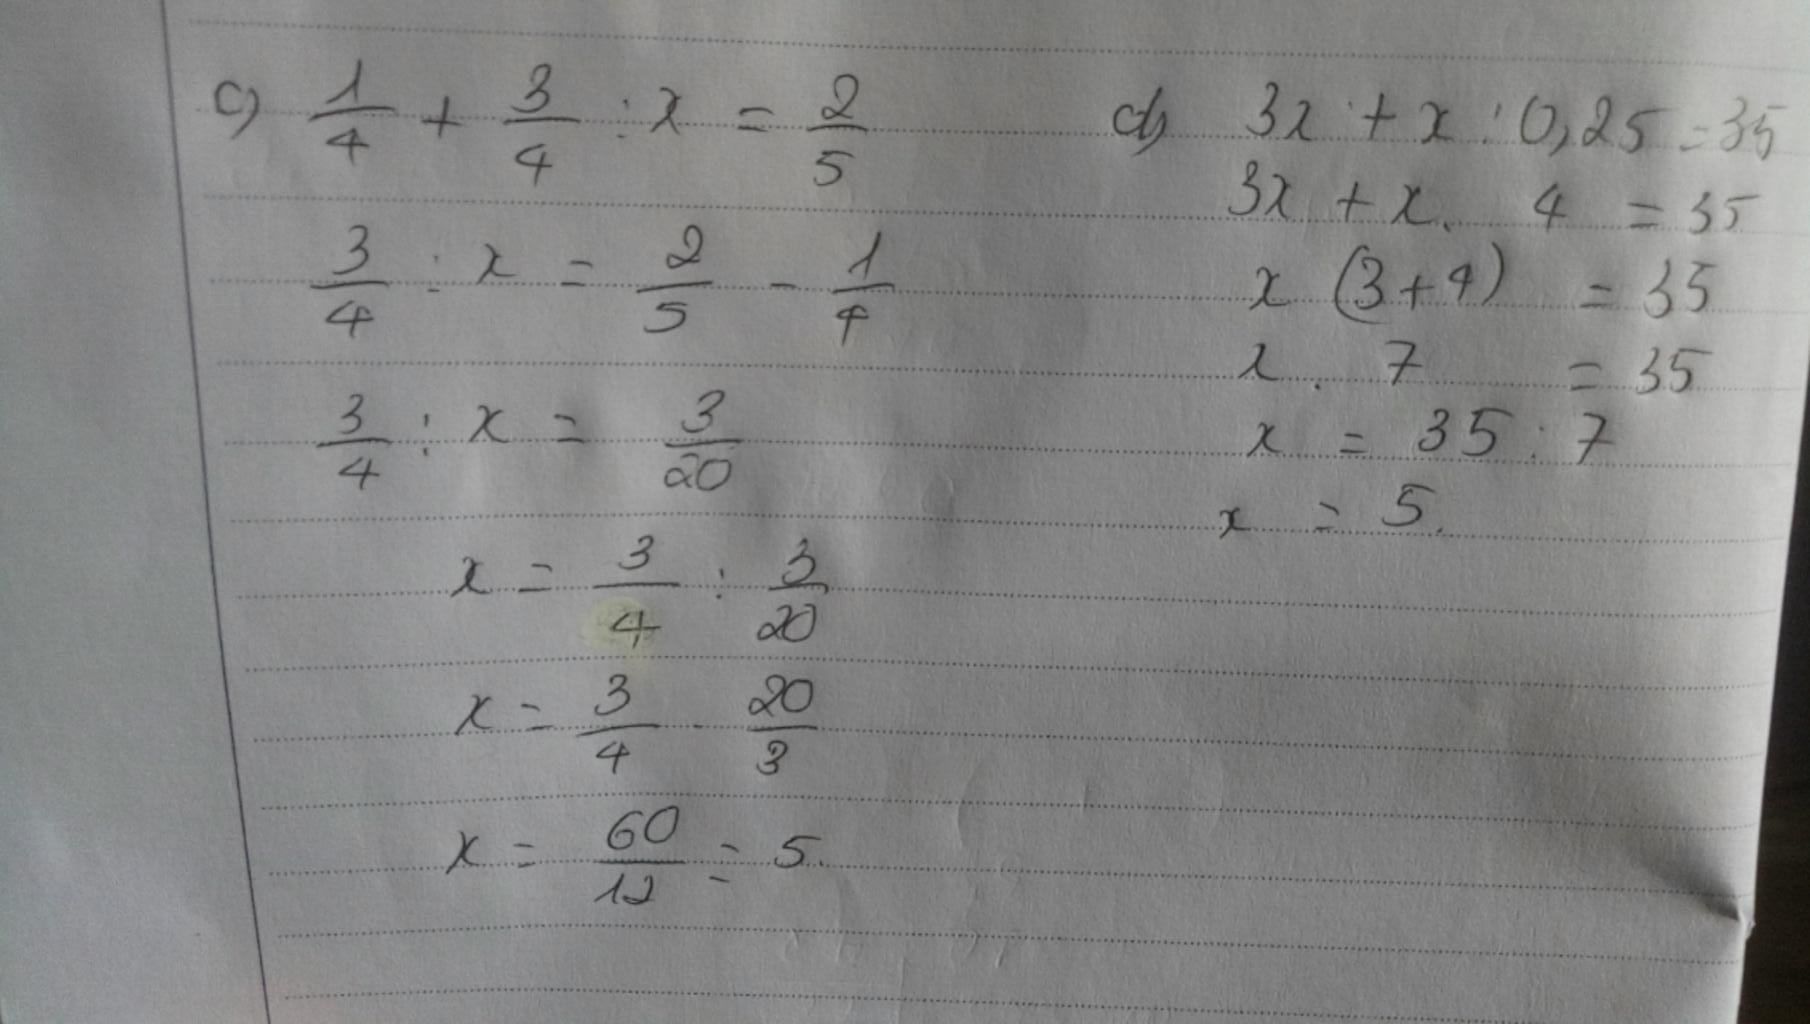 c) 1/4 + 3/4 : x = 2/5
3/4 : x = 2/5 - 1/4
3/4 : x = 3/20
x = 3/4 : 3/20
x = 3/4 . 20/3
x = 60/12 = 5.
d) 3x + x : 0,25 = 35
3x + x . 4 = 35
x (3+4) = 35
x . 7 = 35
x = 35 : 7
x = 5.